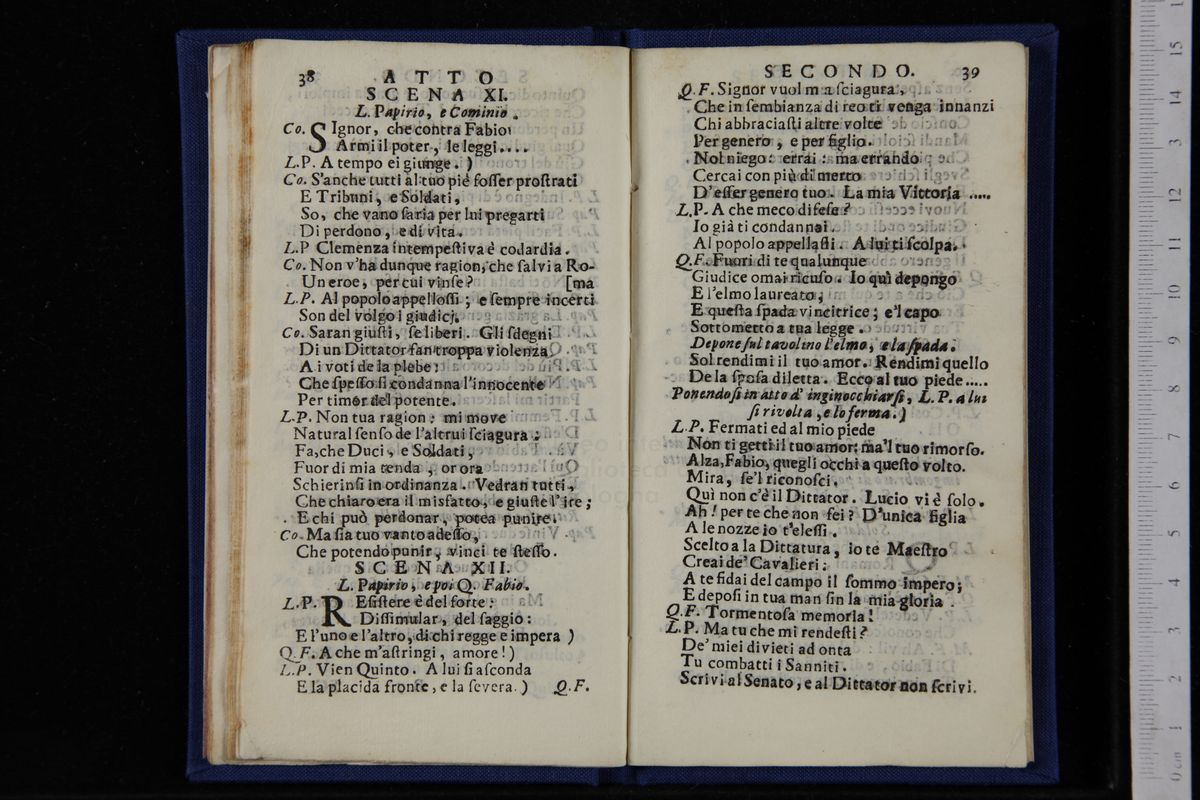 38 ATTO
SCENA XI.
L. Papirio, e Cominio.
Co. SIgnor, che contra Fabio
Armi il poter, le leggi....
L.P. A tempo ei giunge. )
Co. S'anche tutti al tuo piè fosser prostrati
E Tribuni, e Soldati,
So, che vano saria per lui pregarti
Di perdono, e di vita.
L.P Clemenza intempestiva è codardia.
Co. Non v'ha dunque ragion, che salvi a Ro-
Un eroe, per cui vinse? [ma
L.P. Al popolo appellossi; e sempre incerti
Son del volgo i giudicj.
Co. Saran giusti, se liberi. Gli sdegni
Di un Dittator fan troppa violenza
A i voti de la plebe:
Che spesso si condanna l'innocente
Per timor del potente.
L.P. Non tua ragion: mi move
Natural senso de l'altrui sciagura:
Fa, che Duci, e Soldati,
Fuor di mia tenda, or ora
Schierinsi in ordinanza. Vedran tutti,
Che chiaro era il misfatto, e giuste l'ire;
E chi può perdonar, potea punire.
Co. Ma sia tuo vanto adesso,
Che potendo punir, vinci te stesso.
SCENA XII.
L. Papirio, e poi Q. Fabio.
L.P. REsistere è del forte:
Dissimular, del saggio:
E l'uno e l'altro, di chi regge e impera )
Q.F. A che m'astringi, amore!)
L.P. Vien Quinto. A lui si asconda
E la placida fronte, e la severa. ) Q.F.
SECONDO. 39
Q.F. Signor vuol mia sciagura,
Che in sembianza di reo ti venga innanzi
Chi abbracciasti altre volte
Per genero, e per figlio.
Nol niego: errai: ma errando
Cercai con più di merto
D'esser genero tuo. La mia Vittoria .....
L.P. A che meco difese?
Io già ti condannai.
Al popolo appellasti. A lui ti scolpa.
Q.F. Fuori di te qualunque
Giudice omai ricuso. Io quì depongo
E l'elmo laureato,
E questa spada vincitrice; e'l capo
Sottometto a tua legge.
Depone sul tavolino l'elmo, e la spada.
Sol rendimi il tuo amor. Rendimi quello
De la sposa diletta. Ecco al tuo piede.....
Ponendosi in atto d' inginocchiarsi, L.P. a lui
si rivolta, e lo ferma.)
L.P. Fermati ed al mio piede
Non ti getti il tuo amor: ma'l tuo rimorso.
Alza, Fabio, quegli occhi a questo volto.
Mira, se'l riconosci.
Quì non c'è il Dittator. Lucio vi è solo.
Ah! per te che non fei? D'unica figlia
A le nozze io t'elessi.
Scelto a la Dittatura, io te Maestro
Creai de' Cavalieri:
A te fidai del campo il sommo impero;
E deposi in tua man fin la mia gloria.
Q.F. Tormentosa memoria!
L.P. Ma tu che mi rendesti?
De' miei divieti ad onta
Tu combatti i Sanniti.
Scrivi al Senato, e al Dittator non scrivi.